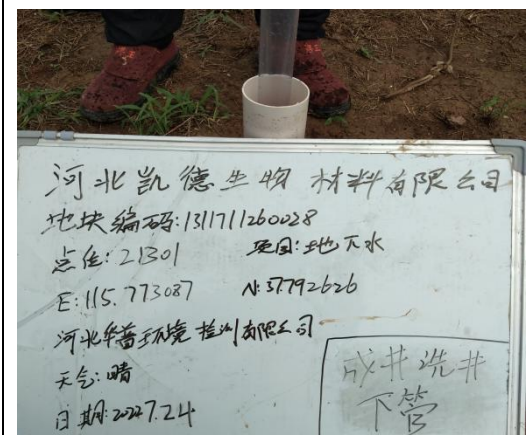 河北凯德生物材料有限公司
地块编码:1311711260028
点位:2B01 项目:地下水
E:115.773087 N:37.792626
河北华普环境检测有限公司
天气:晴
日期:2024.7.24
成井洗井
下管